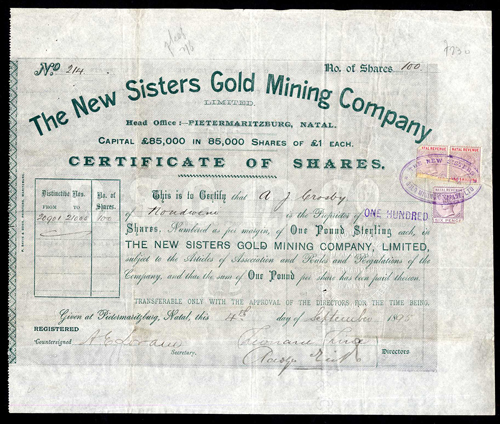 No 214
No. of Shares 100
The New Sisters Gold Mining Company
LIMITED.
Head Office:- PIETERMARITZBURG, NATAL.
CAPITAL £85,000 IN 85,000 SHARES OF £1 EACH.
CERTIFICATE OF SHARES.
Distinctive Nos. No. of Shares.
FROM TO
100
This is to Certify that A J Crosby
of is the Proprietor of ONE HUNDRED
Shares, Numbered as per margin, of One Pound Sterling each, in
THE NEW SISTERS GOLD MINING COMPANY, LIMITED,
subject to the Articles of Association and Rules and Regulations of the
Company, and that the sum of One Pound per share has been paid thereon.
TRANSFERABLE ONLY WITH THE APPROVAL OF THE DIRECTORS FOR THE TIME BEING.
Given at Pietermaritzburg, Natal, this 4th day of September 1895
REGISTERED
Countersigned
Secretary.
Directors
NATAL REVENUE
NATAL REVENUE
THE NEW SISTERS
NATAL REVENUE